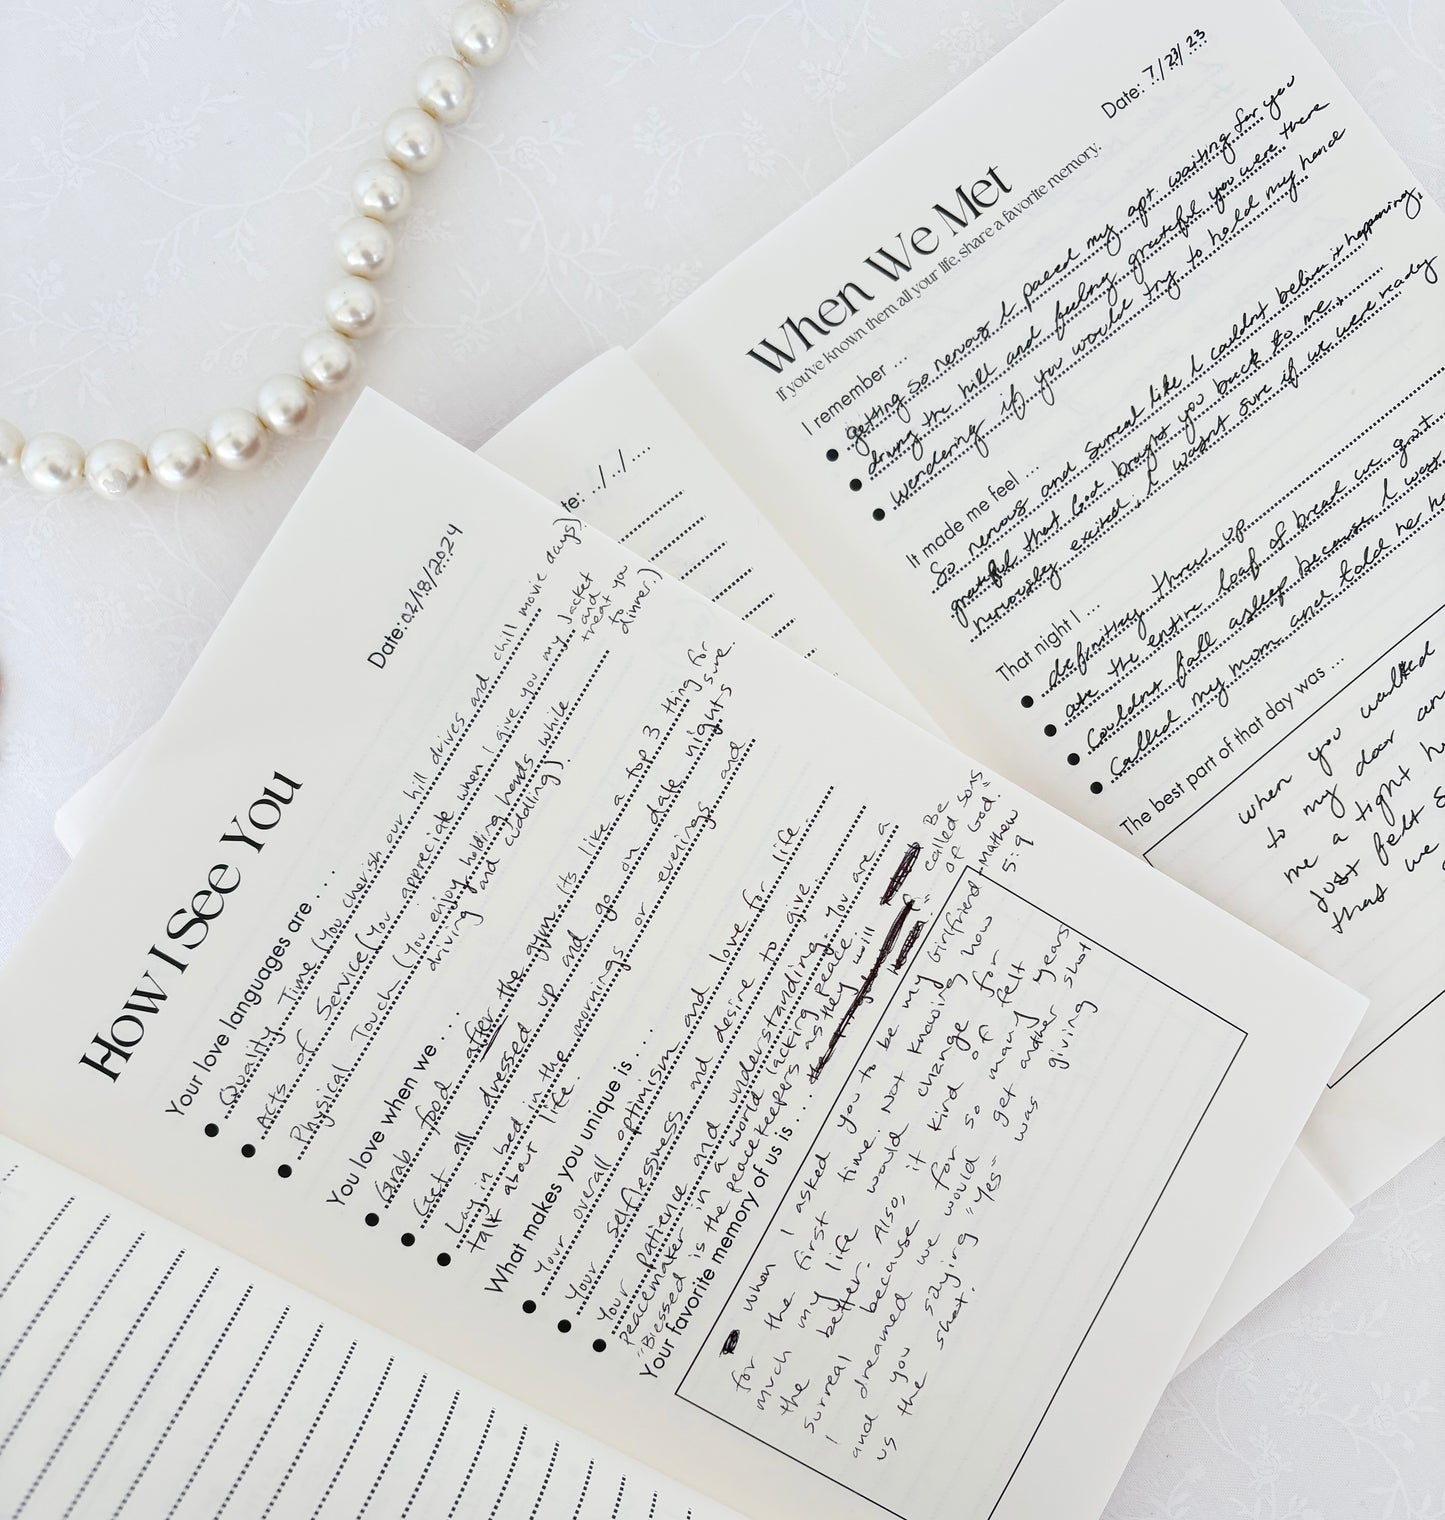 Date: 7/23/23
When We Met
If you've known them all your life, share a favorite memory.
I remember ...
getting so nervous I paced my apt. waiting for you
driving the hill and feeling grateful you were there
wondering if you would try to hold my hand
It made me feel ...
So nervous and surreal like I couldnt believe it happening,
grateful that God brought you back to me,
nervously excited. I wasnt sure if we were ready
That night I ...
definitley threw up
ate the entire loaf of bread we got
couldnt fall asleep because I was
called my mom and told her
The best part of that day was ...
when you walked
to my door
me a tight
Just felt
that we
te: ../../....
Date: 02/18/2024
How I See You
Your love languages are ...
Quality Time (You cherish our hill drives and chill movie days)
Acts of Service (You appreciate when I give you my Jacket
and
treat you
to
dinner.)
Physical Touch (You enjoy holding hands while
driving and cuddling).
You love when we ...
Grab food after the gym. Its like a top 3 thing for
sure.
Get all dressed up and go on date nights
Lay in bed in the mornings or evenings and
talk about life.
What makes you unique is ...
Your overall optimism and love for life.
Your selflessness and desire to give
Your patience and understanding. You are a
peacemaker in a world lacking peace.
"Blessed is the peacekeepers as they will
Be
called sons
of God."
-Matthew
5:9
Your favorite memory of us is ...
When I asked you to be my girlfriend
for the first time. Not knowing how
much my life would change for
the better. Also, it kind of felt
surreal because for so many years
I dreamed we would get another shot
and you saying "yes" was giving
us the shot.